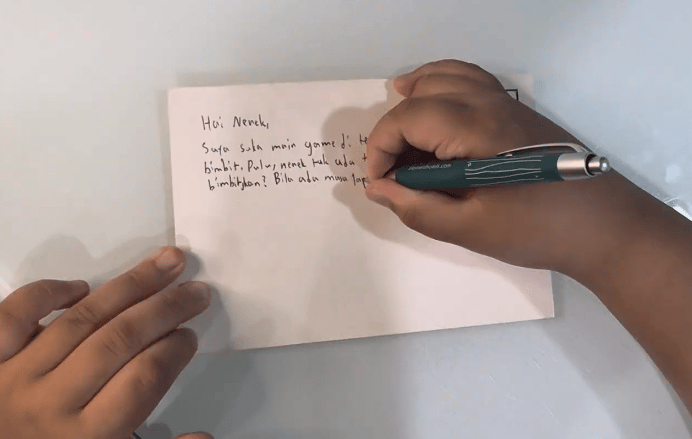 Hai Nenek,
Saya suka main game di te
bimbit. Dulu, nenek tak ada t
bimbitkan? Bila ada masa lapa